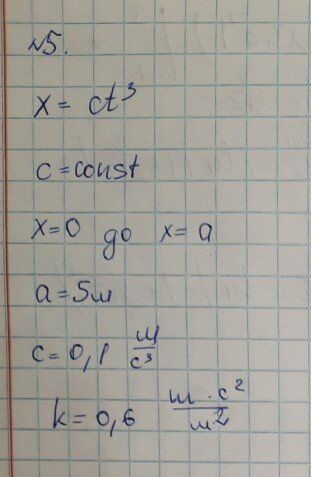 №5.
x = ct³
c = const
x=0 до x= a
a = 5м
c = 0,1 м/с³
k = 0,6 м·с²/м²